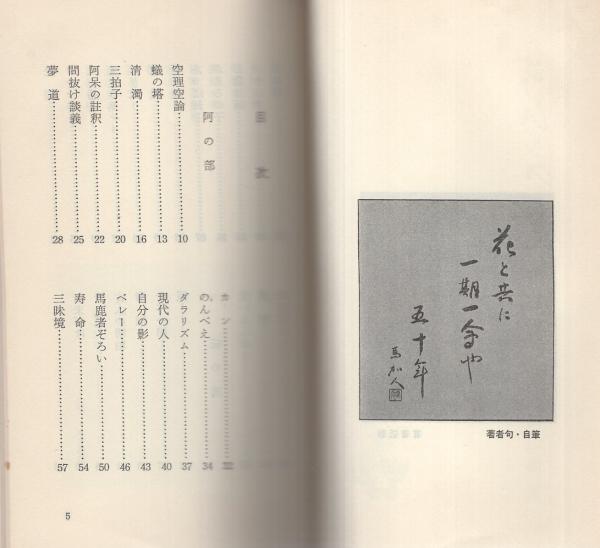 花と共に
一期一会や
五十年
馬加人
著者句・自筆
目次
阿の部
空理空論 10
蟻の塔 13
清濁 16
三拍子 20
阿呆の註釈 22
間抜け談義 25
夢道 28
カン
のんべえ 34
ダラリズム 37
現代の人 40
自分の影 43
ベレー 46
馬鹿者ぞろい 50
寿命 54
三昧境 57
5